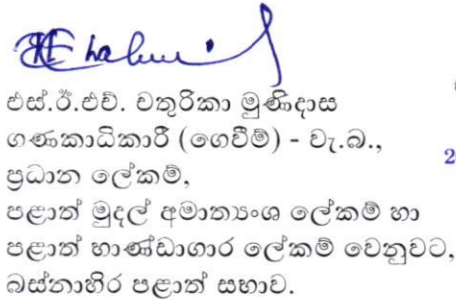 එස්.ඊ.එච්. චතුරිකා මුණිදාස
ගණකාධිකාරී (ගෙවීම්) - වැ.බ.,
ප්‍රධාන ලේකම්,
පළාත් මුදල් අමාත්‍යංශ ලේකම් හා
පළාත් භාණ්ඩාගාර ලේකම් වෙනුවට,
බස්නාහිර පළාත් සභාව.